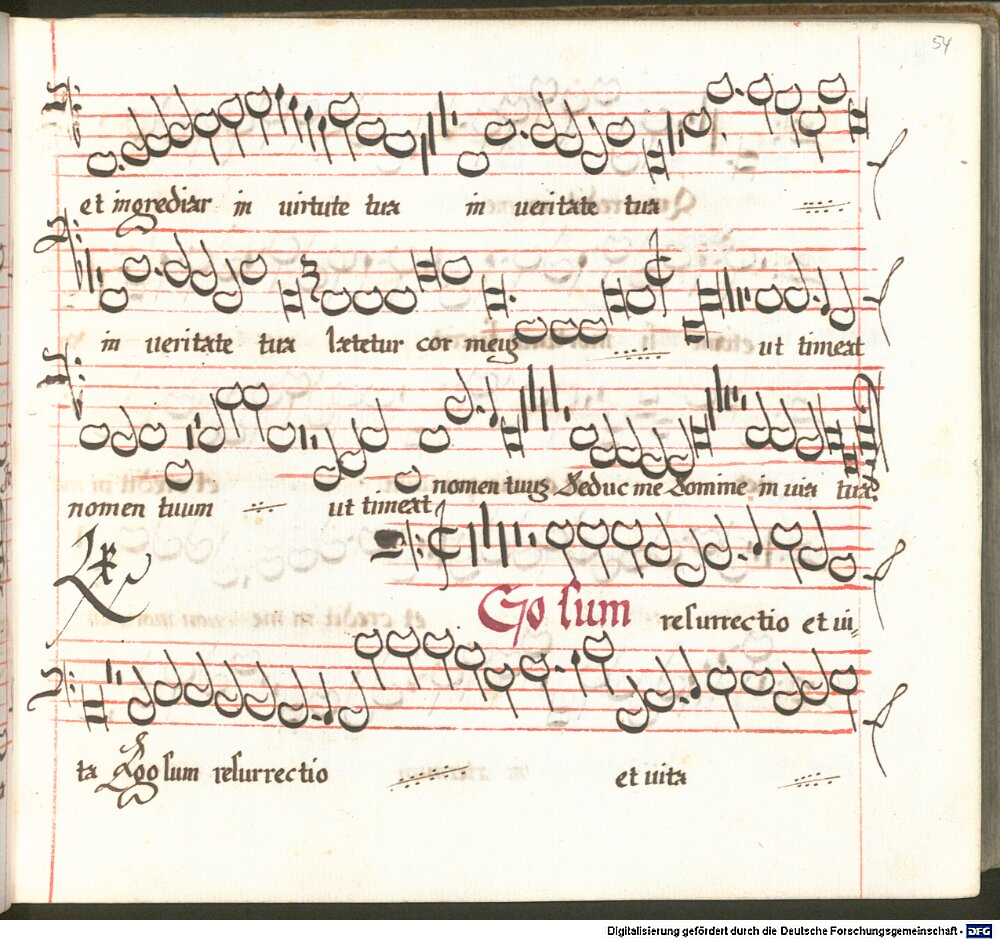 54
et ingrediar in uirtute tua in ueritate tua
in ueritate tua lætetur cor meuʒ ut timeat
nomen tuum ut timeat nomen tuuʒ Deduc me Domine in uia tua.
Go sum resurrectio et ui-
ta Ego sum resurrectio et uita
Digitalisierung gefördert durch die Deutsche Forschungsgemeinschaft - DFG